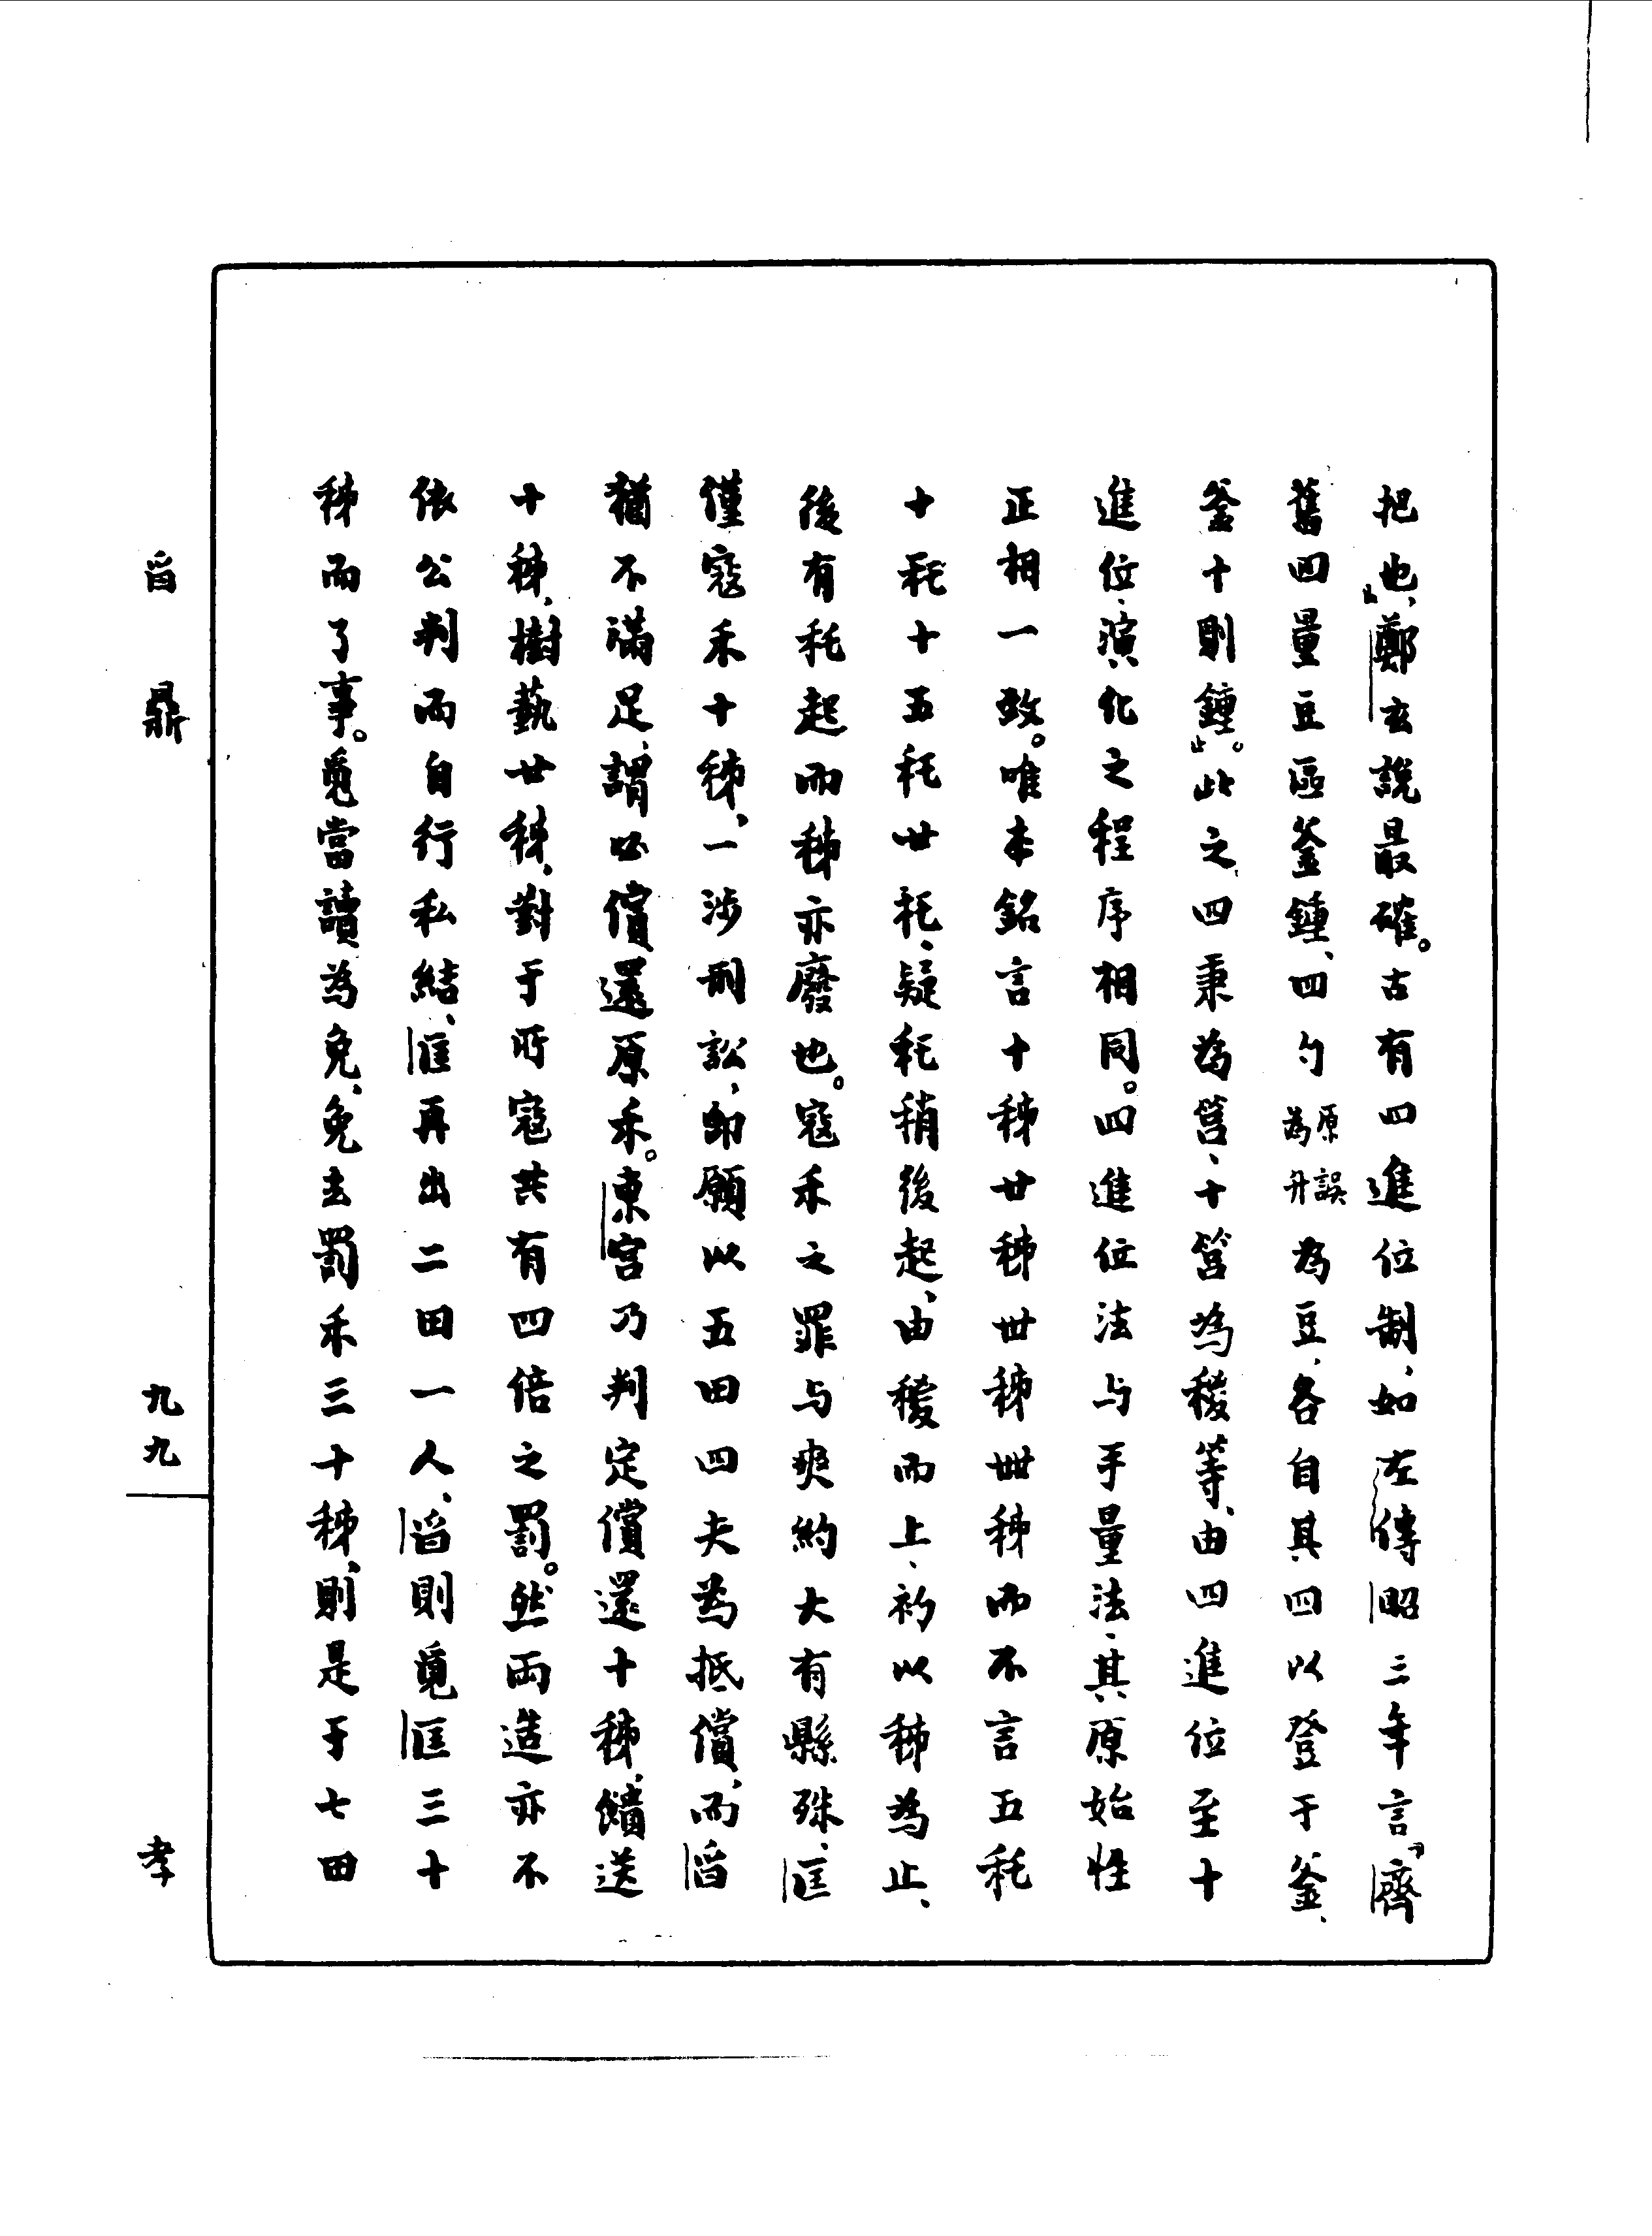 把也」，鄭玄說最確。古有四進位制，如左傳昭三年言「齊
舊四量豆區釜鍾，四勺原誤為升為豆，各自其四以登于釜，
釜十則鍾」。此之四秉為筥，十筥為稯等，由四進位至十
進位，演化之程序相同。四進位法与手量法，其原始性
正相一致。唯本銘言十秭廿秭卅秭卌秭而不言五秅
十秅十五秅廿秅，疑秅稍後起，由稯而上，初以秭為止，
後有秅起而秭亦廢也。寇禾之罪与爽約大有縣殊，匡
僅寇禾十秭，一涉刑訟，即願以五田四夫為抵償，而曶
猶不滿足，謂必償還原禾。東宮乃判定償還十秭，饋送
十秭，樹藝廿秭，對于所寇共有四倍之罰。然兩造亦不
依公判而自行私結，匡再出二田一人，曶則覓匡三十
秭而了事。覓當讀為免，免去罰禾三十秭，則是于七田
曶鼎
九九
孝